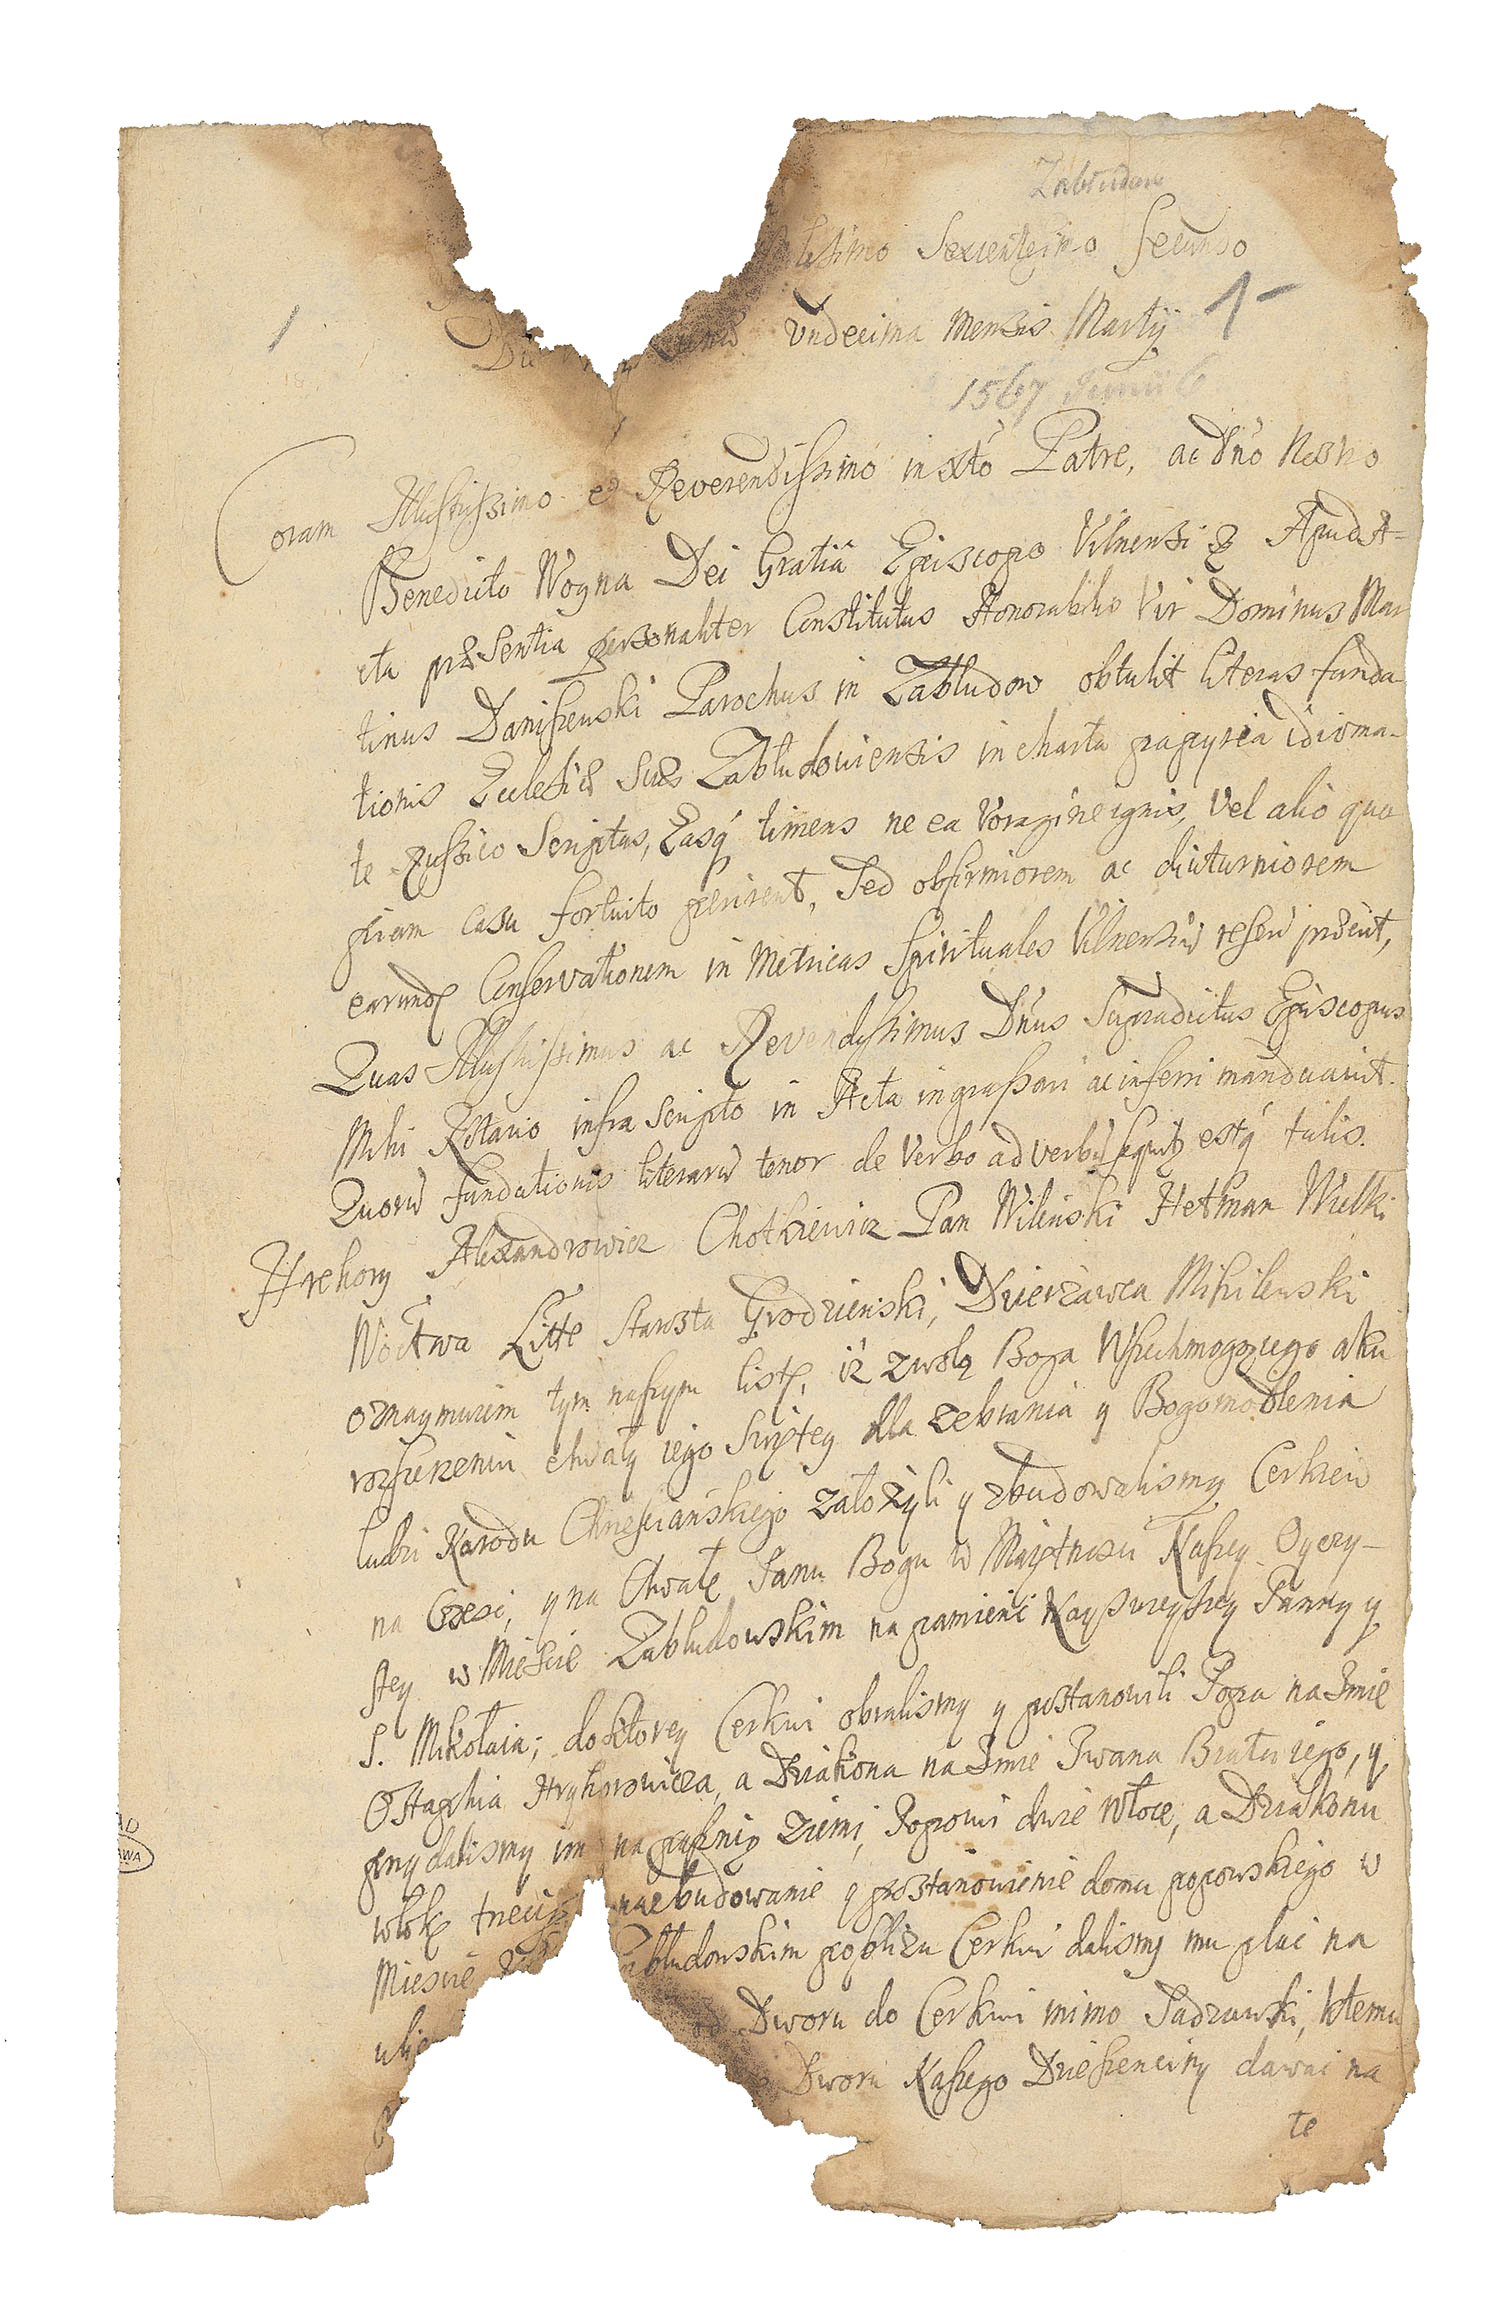 Zabłudow
lesimo Sexcentesimo Secundo
1
Die undecima Mensis Martij 1
1567 Junii 6
Coram Illustrissimo et Reverendissimo in Xto Patre, ac Dno Nostro
Benedicto Woyna Dei Gratiâ Episcopo Vilnensi Apud A=
cta præsentia personaliter Constitutus Honorabilis Vir Dominus Mar
tinus Daniszewski Parochus in Zabludow obtulit literas funda
tionis Ecclesiæ Suæ Zabłudoviensis in charta papyrea idioma-
te Russico Scriptas, Easq timens ne ea Voragine ignis, Vel alio quo
piam casu fortuito perirent, Sed ob firmiorem ac diuturniorem
earund Conservationem in Metricas Spirituales Vilnensiu
Quas Illustrissimus ac Reverendissimus Dnus Supradictus Episcopus
Mihi Notario infra Scripto in Acta ingrassari ac inferri mandavit.
Quoru fundationis literaru tenor de Verbo ad verbu sequit estq talis.
Hrehory Alexandrowicz Chotkiewicz Pan Wilenski Hetman Wielki
Wo Xtwa Litte Starosta Grodzienski, Dzierzawca Mihilewski
oznaymuiem tym naszym liste, iz z wolą Boga Wszechmogącego a ku
rozszerzeniu chwały iego Swiętey dla zebrania y Bogomodlenia
ludzi Narodu Chrescianskiego załozyli y zbudowalismy Cerkiew
na Czesc, y na Chwałe Panu Bogu w Maiętnosci Naszey Oyczy-
stey w Miescie Zabludowskim na pamienc Nayswieyszey Panny y
S. Mikołaia; do ktorey Cerkwi obralismy y postanowili Popa na Imie
Ostaphia Hryhorowicza, a Dziakona na Imie Iwana Brata iego, y
przydalismy im na pasznię ziemi, Popowi dwie włoce, a Dziakonu
włokę trzecią na zbudowanie y postanowienie domu popowskiego w
Miescie Zabłudowskim poblizu Cerkwi dalismy mu plac na
ulic od Dworu do Cerkwi mimo Sadzawki, ktemu
Dworu Naszego Dziesienciny dawac na
te